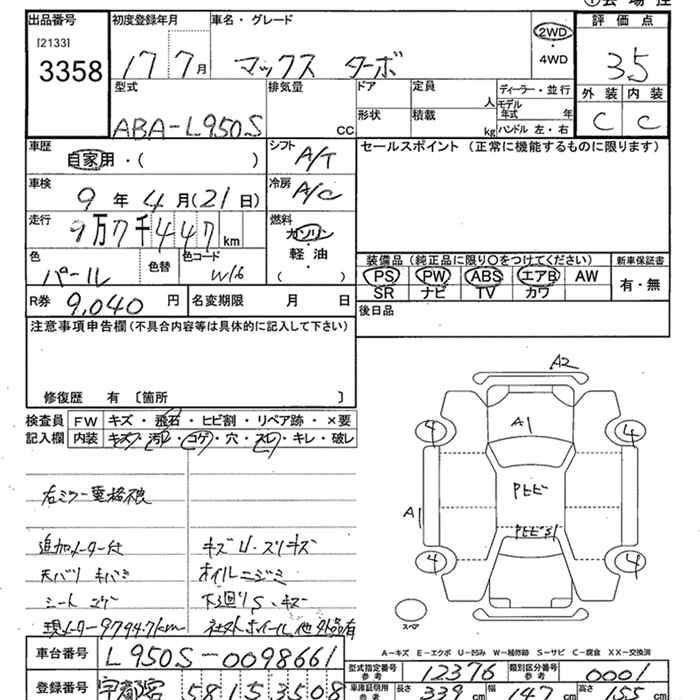 出品番号
[2133]
3358
初度登録年月
17 7月
車名・グレード
マックス ターボ
2WD
・
4WD
評価点
3.5
外装 内装
C C
型式
ABA-L950S
排気量
cc
ドア
形状
定員
人
積載
kg
ディーラー・並行
モデル年式 年
ハンドル 左・右
車歴
自家用・( )
シフト
A/T
セールスポイント (正常に機能するものに限ります)
車検
9年4月(21日)
冷房
A/C
走行
9万7千447km
燃料
ガソリン
軽油
( )
色
パール
色替
色コード
W16
装備品 (純正品に限り○をつけてください)
新車保証書
PS PW ABS エアB AW
SR ナビ TV カワ
有・無
R券 9,040円
名変期限 月 日
後日品
注意事項申告欄(不具合内容等は具体的に記入して下さい)
修復歴 有 〔箇所 〕
検査員
記入欄
FW キズ・飛石・ヒビ割・リペア跡・×要
内装 キズ・汚れ・コゲ・穴・スレ・キレ・破レ
追加メーター付
シート コゲ
現メーター97947km
キズU・スリキズ
オイルニジミ
下廻りS、キズ
社外ホイール他外品有
A2
A1
4 4
Pヒビ
A1
PヒビS1
4 4
スペア
A-キズ E-エクボ U-凹み W-補修跡 S-サビ C-腐食 XX-交換済
車台番号
L950S-0098661
型式指定番号
参考
12376
類別区分番号
参考
0001
登録番号
宇都宮 581 5 3508
車庫証明用
参考
長さ 339cm 幅 147cm 高さ 155cm